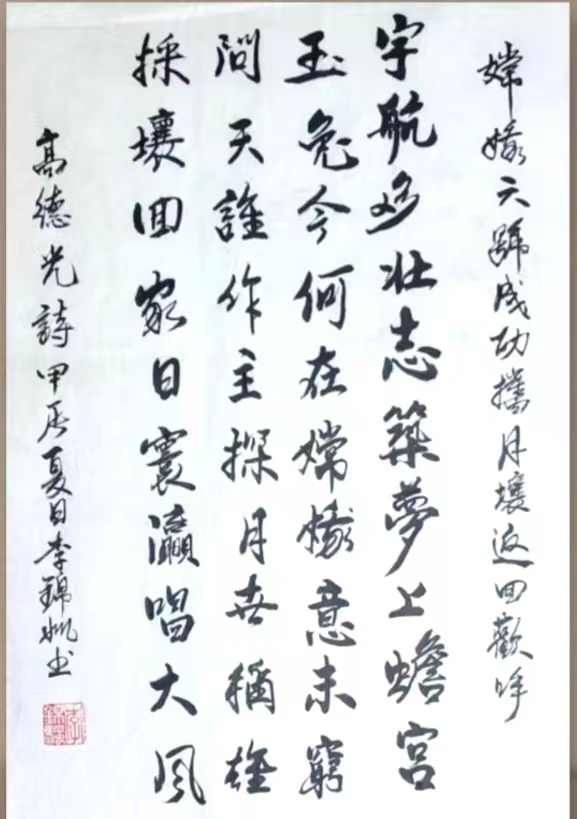 嫦娥六號成功攜月壤返回歡呼
宇航多壯志築夢上蟾宮
玉兔今何在嫦娥意未窮
問天誰作主探月世稱雄
採壤回家日寰瀛唱大風
高德光詩甲辰夏日李錦書